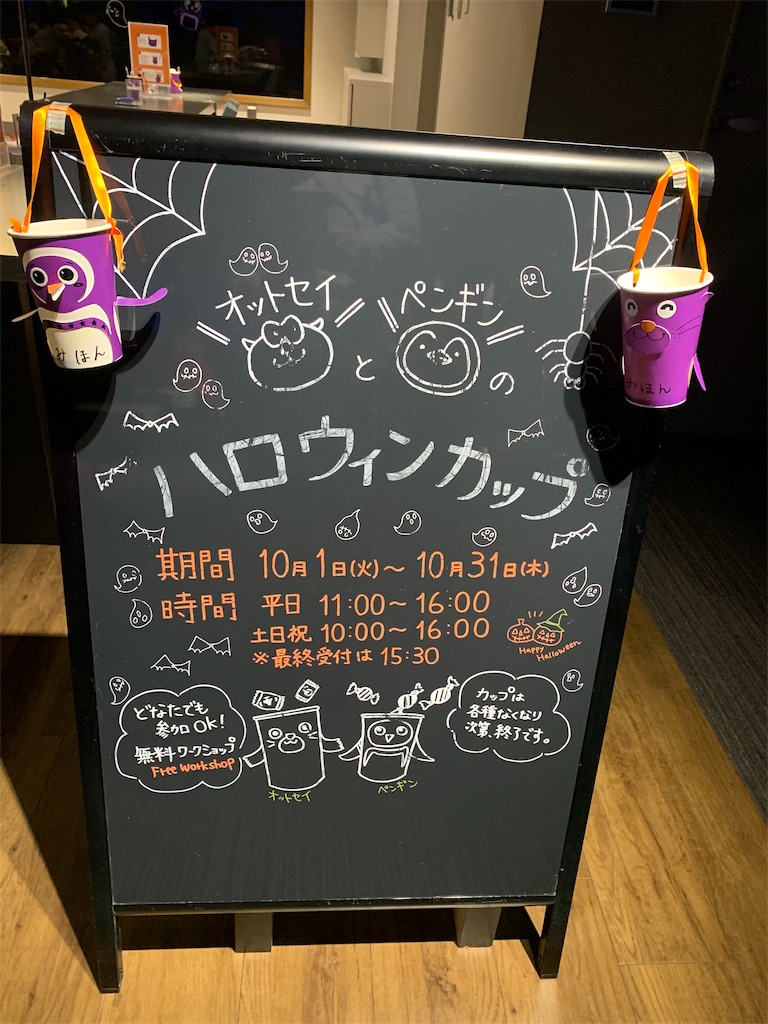 オットセイ
と
ペンギン
の
ハロウィンカップ
期間 10月1日(火)〜10月31日(木)
時間 平日 11:00〜16:00
土日祝 10:00〜16:00
※最終受付は 15:30
Happy
Halloween
どなたでも
参加OK!
無料ワークショップ
Free Workshop
カップは
各種なくなり
次第、終了です。
オットセイ
ペンギン
みほん
みほん